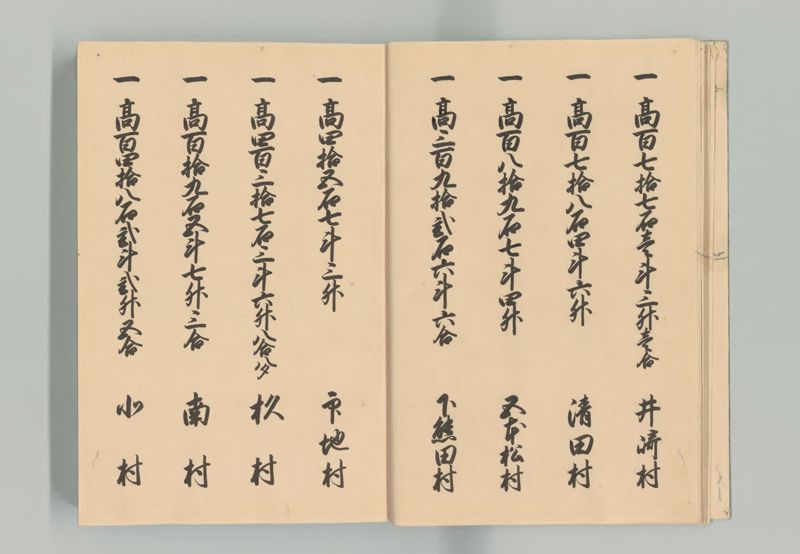 一 高百七拾七石壱斗三升壱合 井崎村
一 高百七拾八石四斗六升 清田村
一 高百八拾九石七斗四升 五本松村
一 高三百九拾弐石六斗六合 下熊田村
一 高四拾五石七斗三升 市地村
一 高四百三拾七石三斗六升八合八夕 杉村
一 高百拾九石五斗七升三合 南村
一 高百四拾八石弐斗弐升五合 北村